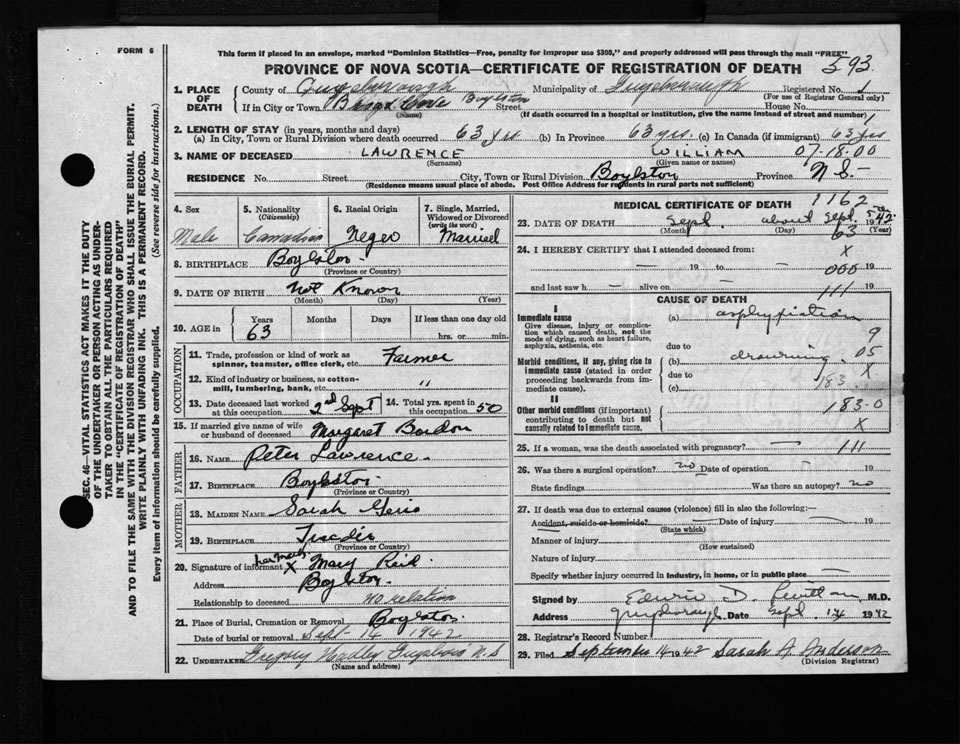 FORM 6
This form if placed in an envelope, marked "Dominion Statistics—Free, penalty for improper use $300," and properly addressed will pass through the mail "FREE"
PROVINCE OF NOVA SCOTIA—CERTIFICATE OF REGISTRATION OF DEATH 593
1. PLACE OF DEATH County of Guysborough Municipality of Guysborough Registered No. 1
(For use of Registrar General only)
If in City or Town Boylston Street House No.
(Name) (If death occurred in a hospital or institution, give the name instead of street and number)
2. LENGTH OF STAY (in years, months and days)
(a) In City, Town or Rural Division where death occurred 63 yrs. (b) In Province 63 yrs. (c) In Canada (if immigrant) 63 yrs
3. NAME OF DECEASED LAWRENCE WILLIAM 07-18-00
(Surname) (Given name or names)
RESIDENCE No. Street City, Town or Rural Division Boylston Province N.S.
(Residence means usual place of abode. Post Office Address for residents in rural parts not sufficient)
4. Sex Male
5. Nationality (Citizenship) Canadian
6. Racial Origin Negro
7. Single, Married, Widowed or Divorced (write the word) Married
8. BIRTHPLACE Boylston
(Province or Country)
9. DATE OF BIRTH Not Known
(Month) (Day) (Year)
10. AGE in Years 63 Months Days If less than one day old hrs. or min.
OCCUPATION
11. Trade, profession or kind of work as spinner, teamster, office clerk, etc. Farmer
12. Kind of industry or business, as cotton-mill, lumbering, bank, etc. "
13. Date deceased last worked at this occupation 2nd Sept
14. Total yrs. spent in this occupation 50
15. If married give name of wife or husband of deceased Margaret Bordon
FATHER
16. NAME Peter Lawrence
17. BIRTHPLACE Boylston
(Province or Country)
MOTHER
18. MAIDEN NAME Sarah
19. BIRTHPLACE Tracdie
(Province or Country)
20. Signature of informant her mark X Mary Reid
Address Boylston
Relationship to deceased no relation
21. Place of Burial, Cremation or Removal Boylston
Date of burial or removal Sept 14 1942
22. UNDERTAKER Gregory Hadley Guysboro N.S
(Name and address)
MEDICAL CERTIFICATE OF DEATH 1162
23. DATE OF DEATH Sept. about Sept 5 1942
(Month) (Day) (Year)
63
24. I HEREBY CERTIFY that I attended deceased from: X
— 19 to — 000 19
and last saw h — alive on — 111 19
CAUSE OF DEATH
I
Immediate cause
Give disease, injury or complication which caused death, not the mode of dying, such as heart failure, asphyxia, asthenia, etc.
(a) asphyxiation
due to 9
Morbid conditions, if any, giving rise to immediate cause (stated in order proceeding backwards from immediate cause).
(b) drowning. 05
due to X
(c) 183.
II
Other morbid conditions (if important) contributing to death but not causally related to immediate cause.
183-0
X
25. If a woman, was the death associated with pregnancy? — 111
26. Was there a surgical operation? no Date of operation — 19
State findings Was there an autopsy? no
27. If death was due to external causes (violence) fill in also the following:—
Accident, suicide or homicide? — Date of injury 19
(State which)
Manner of injury
(How sustained)
Nature of injury
Specify whether injury occurred in industry, in home, or in public place —
Signed by Edwin D. M.D.
Address Guysborough Date Sept 14 1942
28. Registrar's Record Number 1
29. Filed September 14 1942 Sarah A Anderson
(Division Registrar)
SEC. 46—VITAL STATISTICS ACT MAKES IT THE DUTY
OF THE UNDERTAKER OR PERSON ACTING AS UNDER-
TAKER TO OBTAIN ALL THE PARTICULARS REQUIRED
IN THE "CERTIFICATE OF REGISTRATION OF DEATH"
AND TO FILE THE SAME WITH THE DIVISION REGISTRAR WHO SHALL ISSUE THE BURIAL PERMIT.
WRITE PLAINLY WITH UNFADING INK. THIS IS A PERMANENT RECORD.
Every item of information should be carefully supplied. (See reverse side for instructions.)